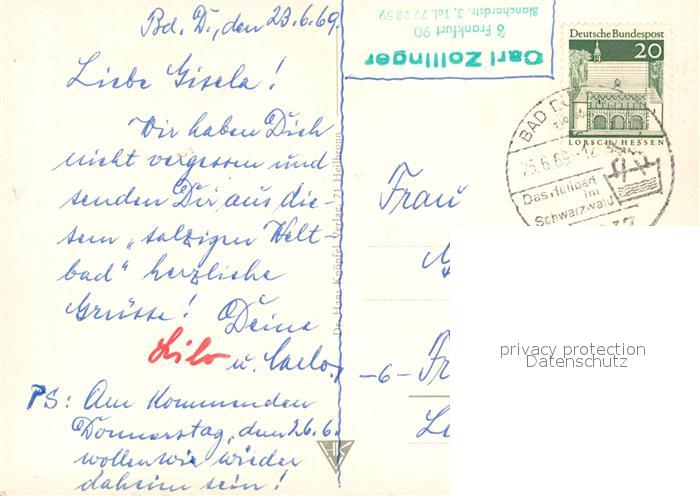 Bd. D., den 23.6.69.
Liebe Gisela!
Wir haben Dich
nicht vergessen und
senden Dir aus die-
sem „salzigen Welt-
bad“ herzliche
Grüsse! Deine
Lilo u. Carlo.
PS: Am kommenden
Donnerstag, den 26.6.
wollen wir wieder
daheim sein!
Dr. Hans Knöpfel Verlag, 71 Heilbronn
HK
Carl Zollinger
6 Frankfurt 90
Blanchardstr. 3, Tel. 77 98 59
Deutsche Bundespost
20
LORSCH/HESSEN
BAD DÜ
23.6.69-12
Das Heilbad
im
Schwarzwald
Frau
-6- Fr
privacy protection
Datenschutz